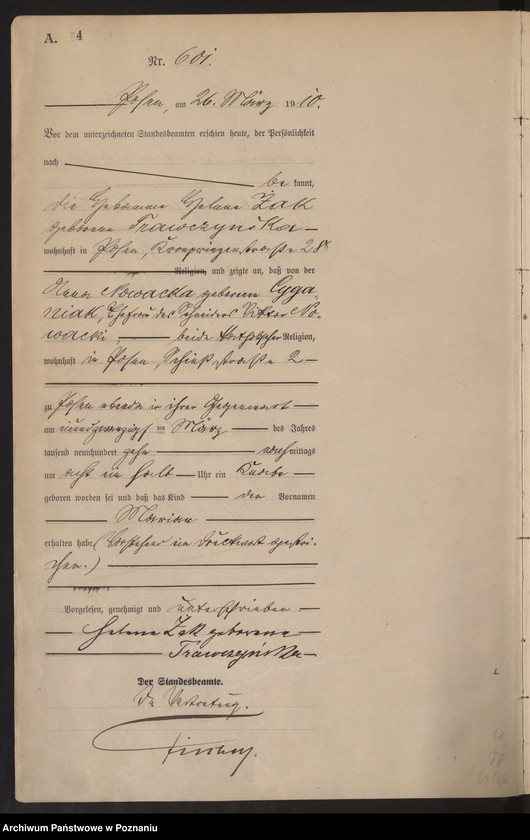 A. 4
Nr. 601.
Posen, am 26. März 1910.
Vor dem unterzeichneten Standesbeamten erschien heute, der Persönlichkeit
nach
be kannt,
die Hebamme Helene Żak
geborene Trawczyńska
wohnhaft in Posen, Kronprinzenstraße 28
Religion, und zeigte an, daß von der
Anna Nowacka geborene Cyga-
niak, Ehefrau des Schneiders Viktor No-
wacki, beide katholischer Religion,
wohnhaft in Posen, Schießstraße 2
zu Posen ebenda in ihrer Gegenwart
am ten März des Jahres
tausend neunhundert zehn nachmittags
um acht ein halb Uhr ein Knabe
geboren worden sei und daß das Kind den Vornamen
Marian
erhalten habe (Vorstehend ein Druckwort gestri-
chen.)
Vorgelesen, genehmigt und unterschrieben
Helene Żak geborene
Trawczyńska
Der Standesbeamte.
In Vertretung.
Archiwum Państwowe w Poznaniu